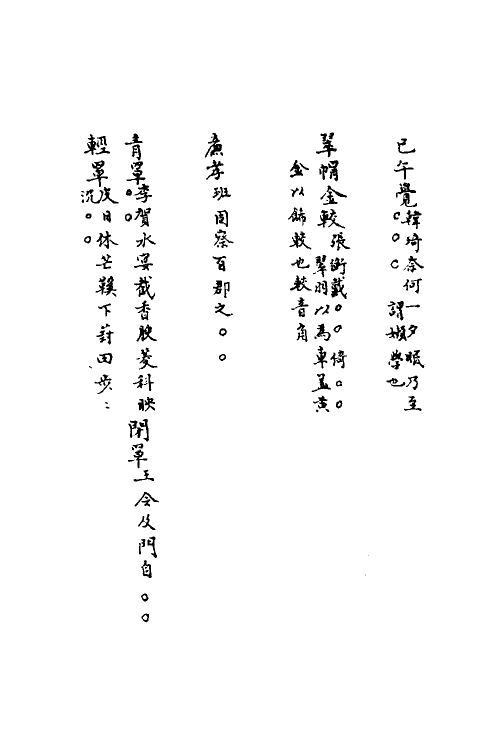 已午覺韓琦奈何一夕眠乃至
○○○謂嬾學也
翠帽金較張衡戴○○倚○○
翠羽以為車蓋黃
金以飾較也較音角
廉孝班固察百郡之○○
青罩李賀水宴截香腴菱科映
○○閑罩王令及門自○○
輕罩皮日休芒鞵下葑田步〻
沉○○